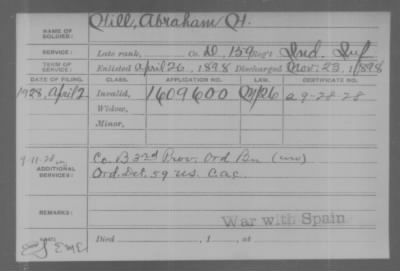 NAME OF SOLDIER: Hill, Abraham H.
SERVICE: Late rank, Co. D, 159 Reg't Ind. Inf
TERM OF SERVICE: Enlisted April 26, 1898 Discharged Nov. 23, 1898
DATE OF FILING. CLASS. APPLICATION NO. LAW. CERTIFICATE NO.
1928, April 2 Invalid, 1609600 a 9-28-28
Widow,
Minor,
9-11-28
ADDITIONAL SERVICES: Co. B 32d Prov. Ord Bn
Ord. Det. 59 U.S. C.A.C.
REMARKS: War with Spain
Died , 1 , at